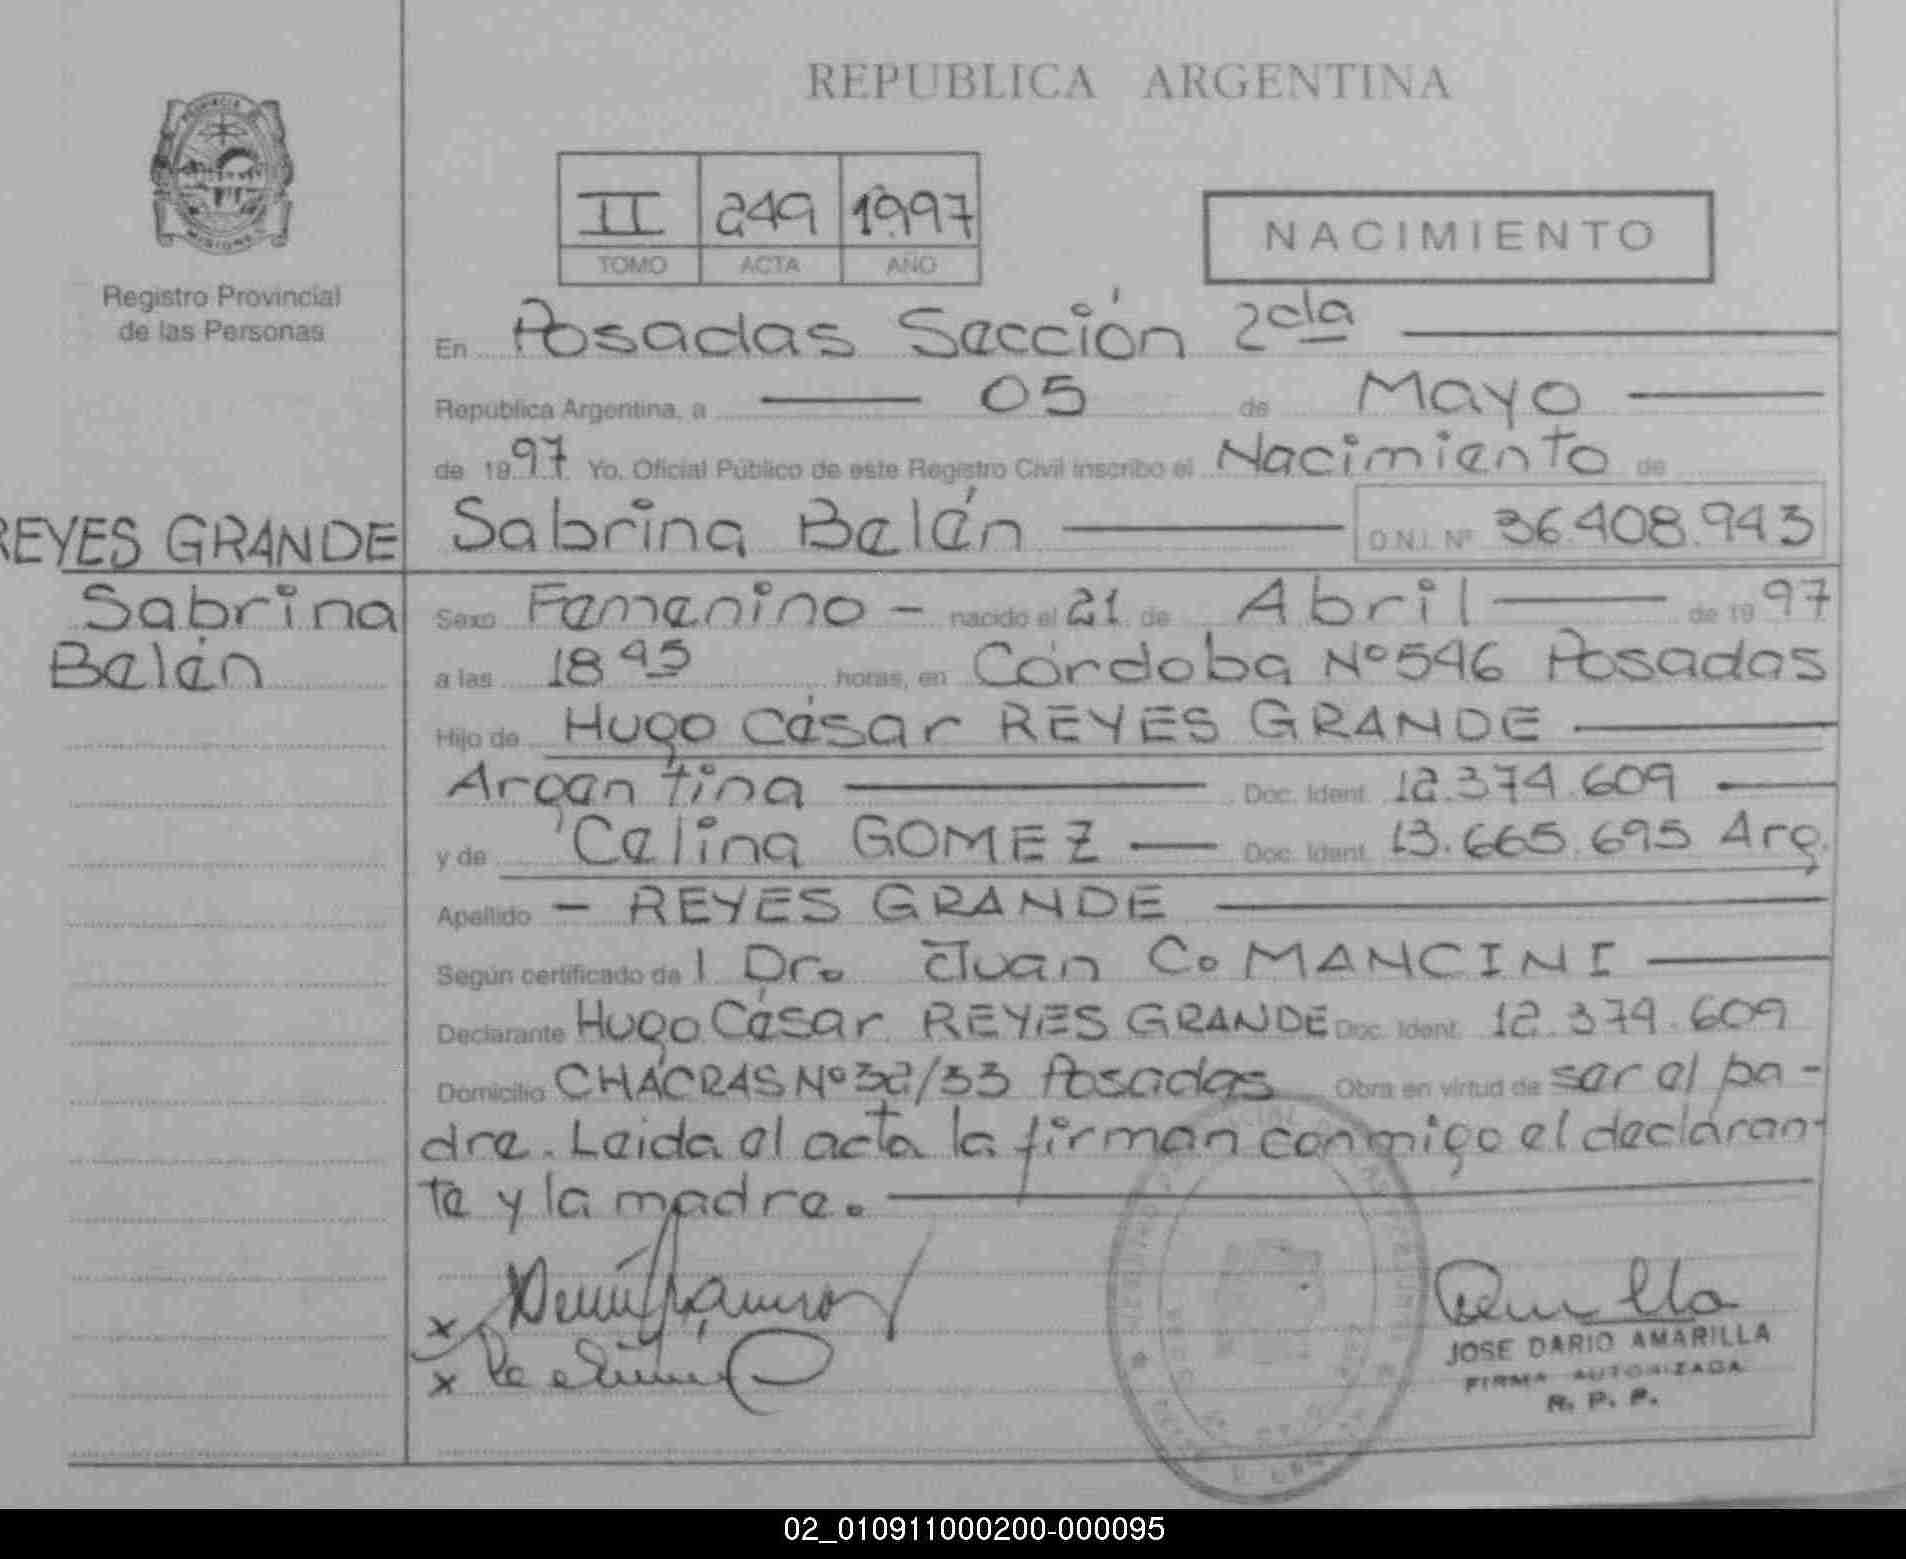 REPUBLICA ARGENTINA
PROVINCIA
MISIONES
Registro Provincial
de las Personas
II 249 1997
TOMO ACTA AÑO
NACIMIENTO
En Posadas Sección 2da
República Argentina, a 05 de Mayo
de 1997 Yo, Oficial Público de este Registro Civil inscribo el Nacimiento de
REYES GRANDE
Sabrina
Belén
Sabrina Belén D.N.I. Nº 36.408.943
Sexo Femenino - nacido el 21 de Abril de 1997
a las 18 45 horas, en Córdoba Nº 546 Posadas
Hijo de Hugo César REYES GRANDE
Argentina Doc. Ident. 12.374.609
y de Celina GOMEZ Doc. Ident. 13.665.695 Arg.
Apellido - REYES GRANDE
Según certificado de l Dr. Juan C. MANCINI
Declarante Hugo César REYES GRANDE Doc. Ident. 12.374.609
Domicilio CHACRAS Nº 32/33 Posadas Obra en virtud de ser el pa-
dre. Leida el acta la firman conmigo el declaran-
te y la madre.
x
x
JOSE DARIO AMARILLA
FIRMA AUTORIZADA
R. P. P.
02_010911000200-000095